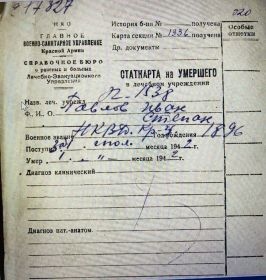 17827
НКО
ГЛАВНОЕ
ВОЕННО-САНИТАРНОЕ УПРАВЛЕНИЕ
Красной Армии
СПРАВОЧНОЕ БЮРО
о раненых и больных
Лечебно-Эвакуационного
Управления
История б-ни № получена
Карта секции № 1336 получена
Др. документы
Особые
отметки
СТАТКАРТА на УМЕРШЕГО
в лечебном учреждении
Назв. леч. учрежд. П-1338
Ф. И. О. Павлов Иван
Степан
Военное звание НКВД Кр-ц Год рождения 1896
Поступил месяца 194 2 г.
Умер " " месяца 194 2 г.
Диагноз клинический
Диагноз пат.-анатом.